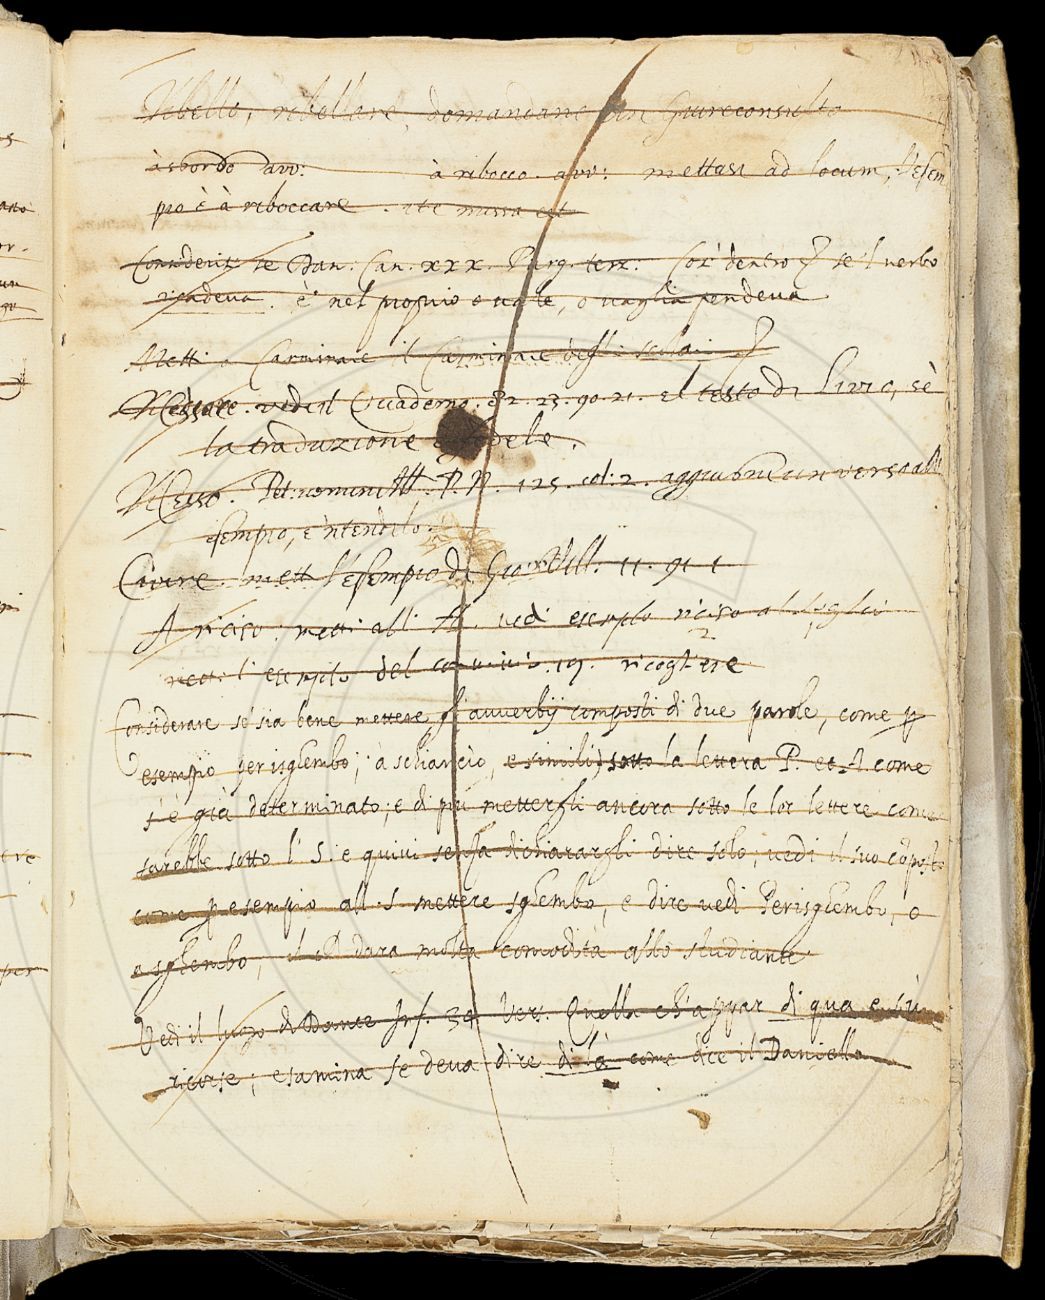 Ribello, ribellare, domandane un Giureconsulto
à sbordo avv: à ribocco avv: mettasi ad locum, l'esem
pio è à riboccare. ite missa est
Considerisi se Dan: Can. xxx. Purg. terz: Cor dentro se 'l verbo
è nel proprio o vale, o vaglia pendeva
Metti a Carminare il Carminare degli
vedi il Quaderno. 82. 23. 90. 21. el testo di Livio, sè
la traduzione è fedele.
Pet: uomini Ill. P. N. 125. col: 2. aggiugni un verso all'
esempio, e 'ntendilo.
mett l'esempio di Gio: Vill. 11. 91. 1
A riciso: metti all' A. vedi esemplo riciso al foglio
l'esemplo del 19. ricogliere
Considerare se sia bene mettere gli avverbij composti di due parole, come p
esempio per isghembo; à schiancio, e simili) sotto la lettera P. et A. come
s'è già determinato; e di più mettergli ancora sotto le lor lettere come
sarebbe sotto l' S. e quivi senza dichiarargli dire solo, vedi il suo cõposto
come p esempio all. S. mettere sghembo, e dire vedi Per isghembo, e
a sghembo, il ch dara molta comodità allo studiante
Vedi il luogo di Dante Inf. 34 Vers. Quella ch'appar di qua e sù
ricorse; esamina se deva dire di là come dice il Daniello